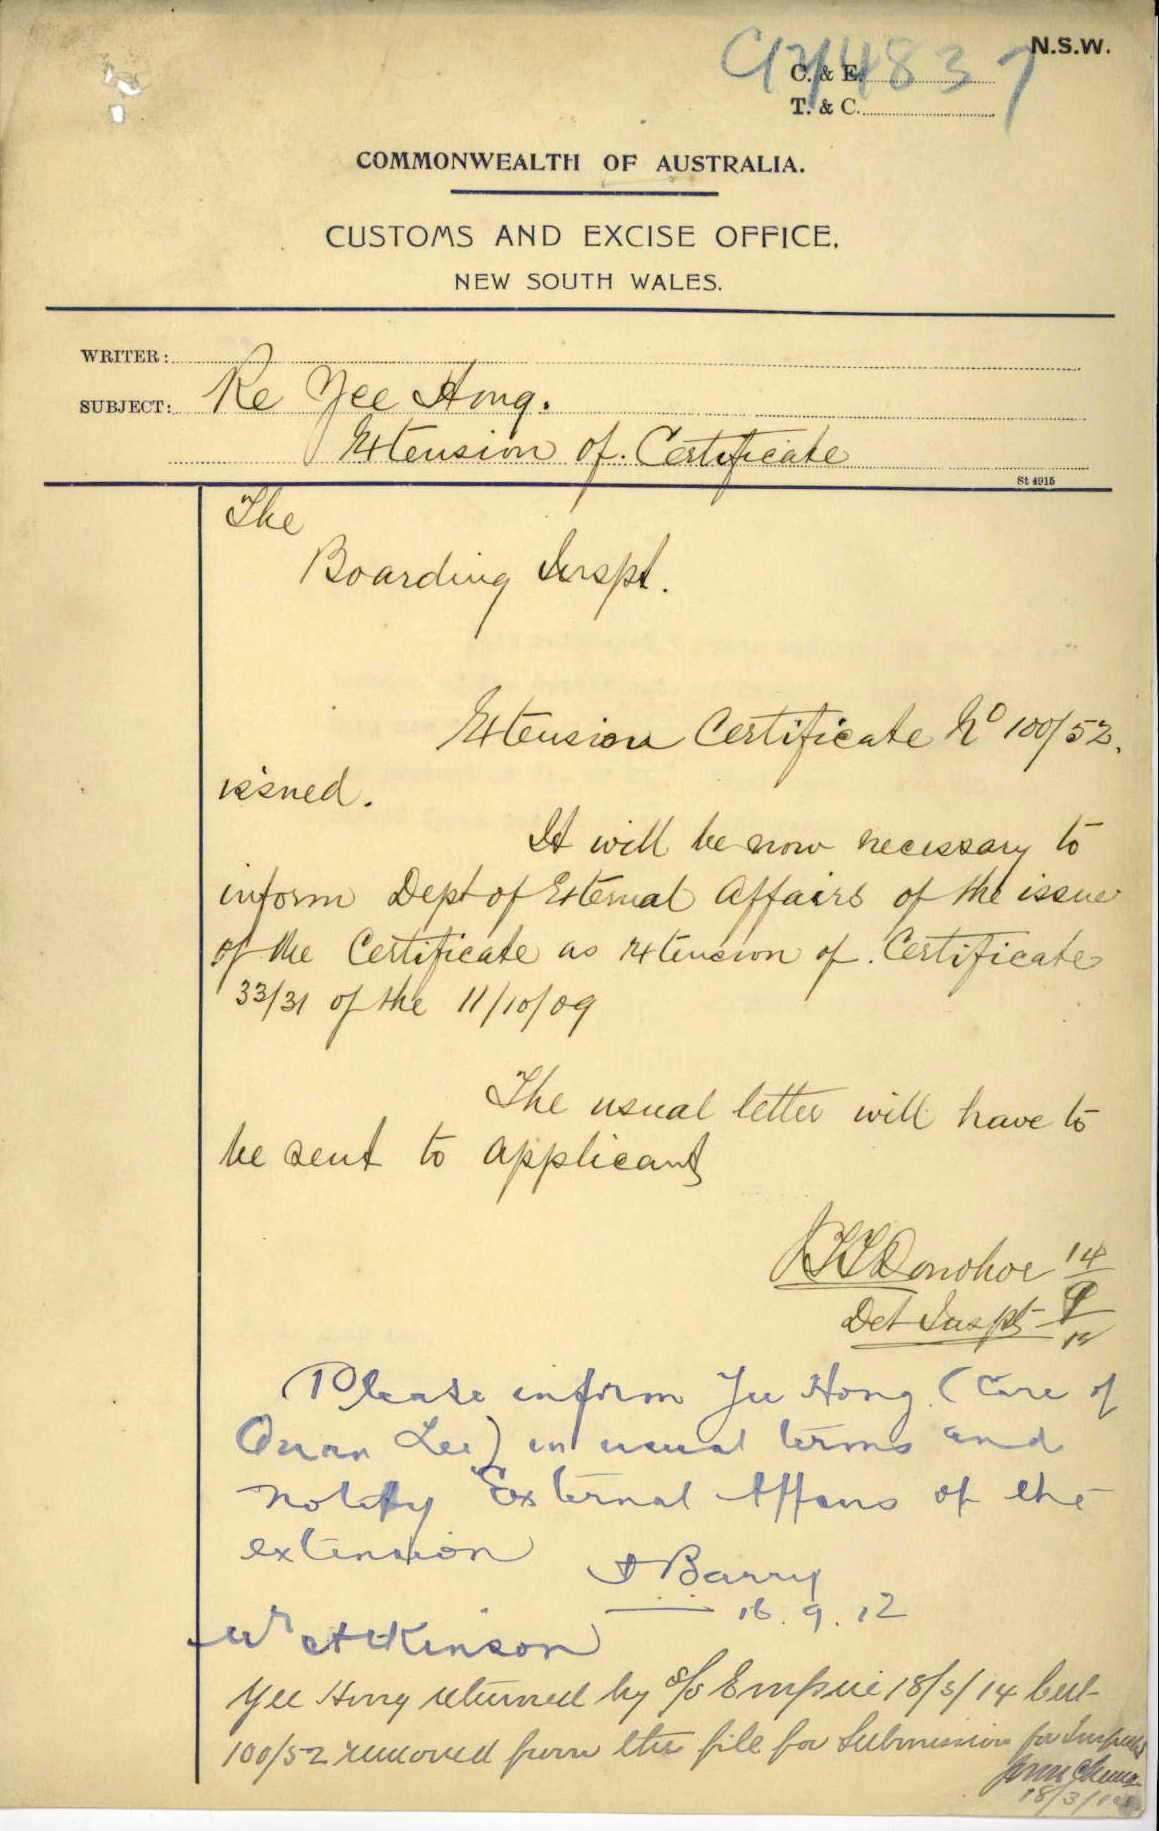 N.S.W.
C. & E.
T. & C.
COMMONWEALTH OF AUSTRALIA.
CUSTOMS AND EXCISE OFFICE,
NEW SOUTH WALES.
WRITER:
SUBJECT: Re Yee Hong.
Extension of Certificate
St 4915
The
Boarding Inspt.
Extension Certificate No 100/52
issued.
It will be now necessary to
inform Dept of External Affairs of the issue
of the Certificate as extension of Certificate
33/31 of the 11/10/09
The usual letter will have to
be sent to applicant
Donohoe 14/9/12
Det Inspt
Please inform Yee Hong (Care of
Quan Lee) in usual terms and
notify External Affairs of the
extension
Barry
16.9.12
Mr Atkinson
Yee Hong returned by s/s Empire 18/3/14 Cert
100/52 removed from this file for Submission for
18/3/